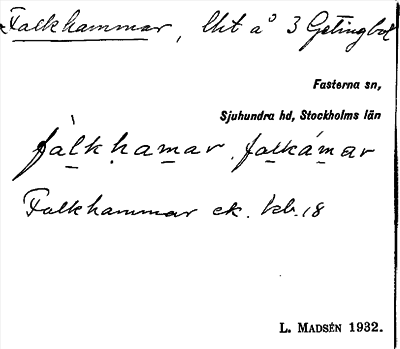 Falkhammar, lht å 3 Getingbol
Fasterna sn,
Sjuhundra hd, Stockholms län
fàlk.hamar, falkámar
Falkhammar ek. kb. 18
L. MADSÉN 1932.